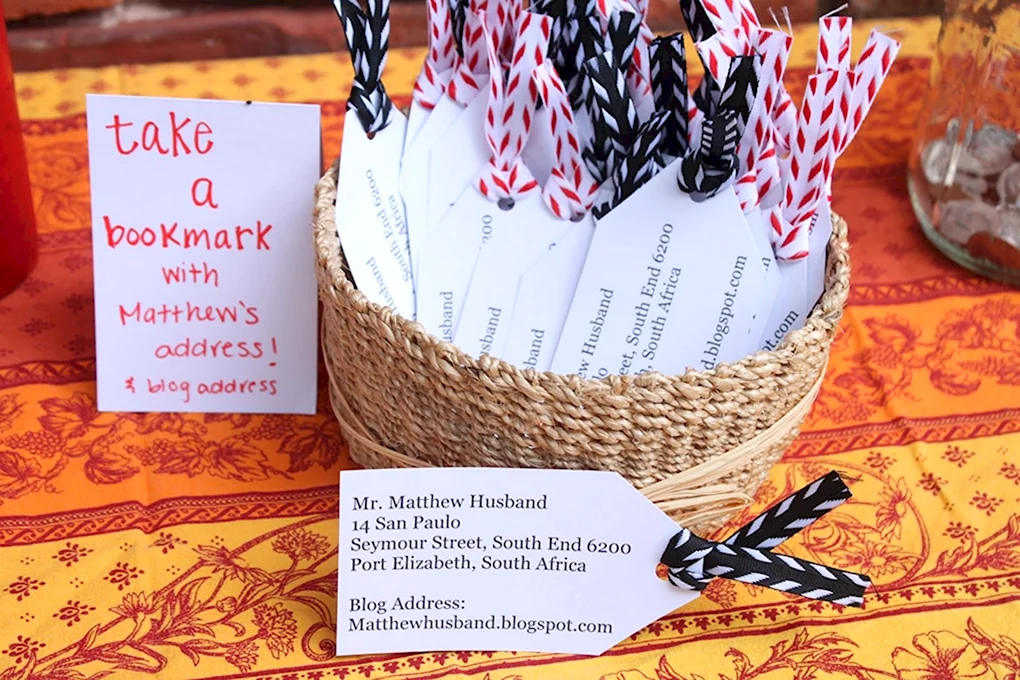 take
a
bookmark
with
Matthew's
address!
& blog address
South End 6200
Africa
Husband
200
Husband
Husband
Husband
Husband
South End 6200
South Africa
blogspot.com
.com
Mr. Matthew Husband
14 San Paulo
Seymour Street, South End 6200
Port Elizabeth, South Africa
Blog Address:
Matthewhusband.blogspot.com